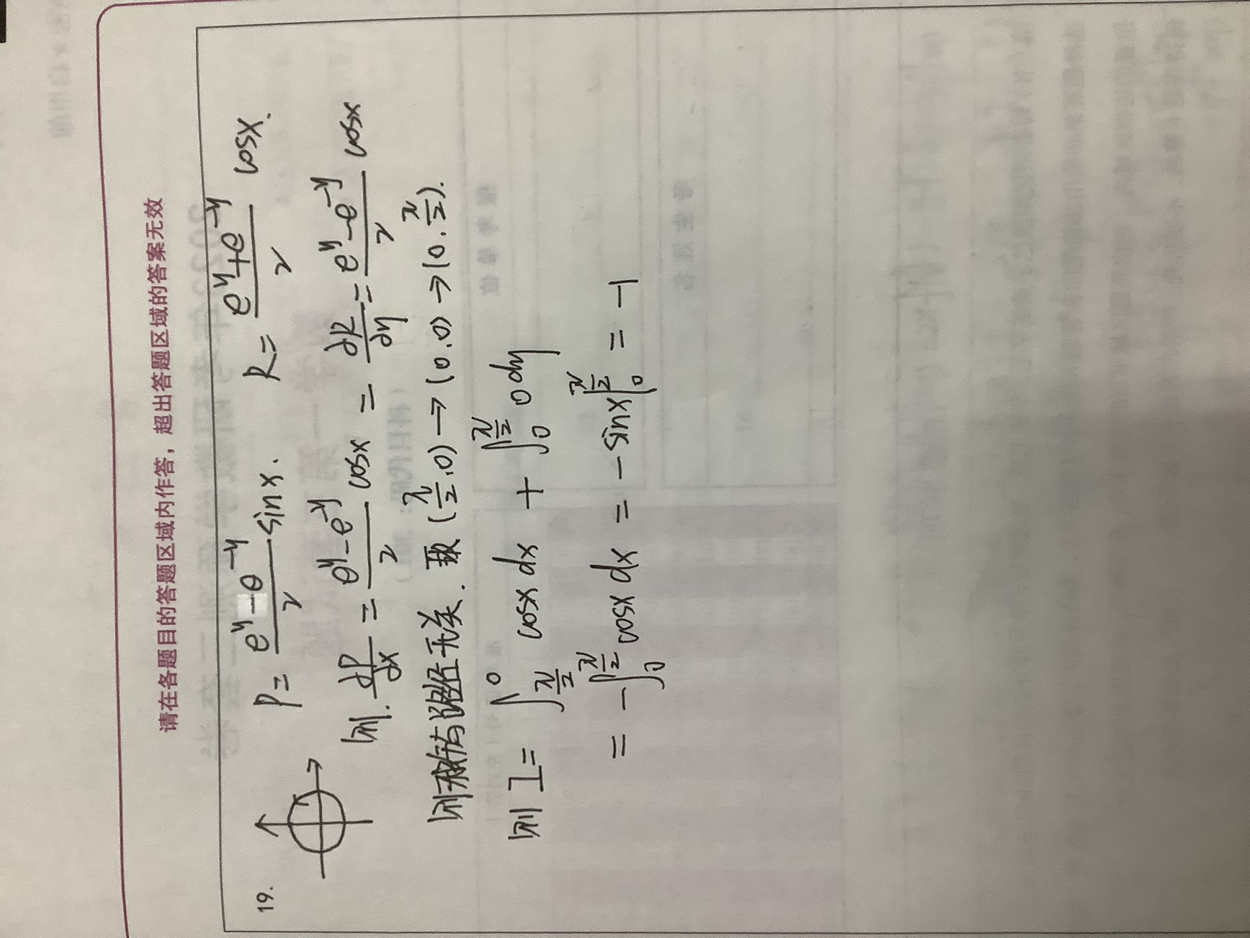 请在各题目的答题区域内作答，超出答题区域的答案无效
19.
P = (e^y - e^-y)/2 sinx. R = (e^y + e^-y)/2 cosx.
则. ∂P/∂x = (e^y - e^-y)/2 cosx = ∂R/∂y = (e^y - e^-y)/2 cosx
则积分与路径无关. 取 (π/2, 0) → (0, 0) → (0, π/2).
则 I = ∫_{π/2}^{0} cosx dx + ∫_{0}^{π/2} 0 dy
= -∫_{0}^{π/2} cosx dx = -sinx|_{0}^{π/2} = -1